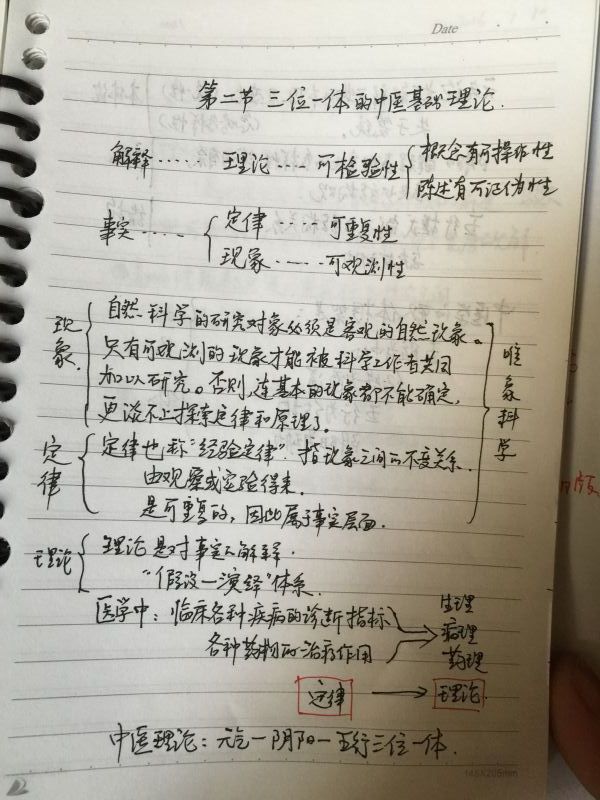 Date
第二节 三位一体的中医基础理论.
解释 ····· 理论 ···· 可检验性 { 概念有可操作性
陈述有可证伪性
事实 ····· { 定律 ····· 可重复性
现象 ····· 可观测性
现象 { 自然科学的研究对象必须是客观的自然现象。
只有可观测的现象才能被科学工作者共同
加以研究。否则,连基本的现象都不能确定,
更谈不上探索定律和原理了。
唯象科学
定律 { 定律也称"经验定律".指现象之间的不变关系.
由观察或实验得来.
是可重复的,因此属于事实层面.
理论 { 理论是对事实的解释.
"假设一演绎"体系.
医学中:临床各种疾病的诊断指标
各种药物的治疗作用
生理
病理
药理
定律 → 理论
中医理论:元气一阴阳一五行三位一体.
148X205mm